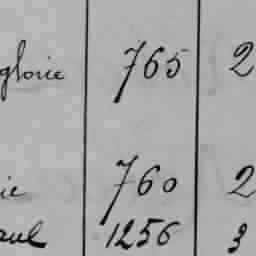 glorie 765 2
ie 760 2
aul 1256 3